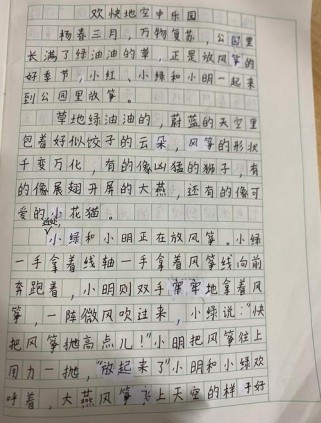 欢快地空中乐园
杨春三月，万物复苏，公园里
长满了绿油油的草，正是放风筝的
好季节，小红、小绿和小明一起来
到公园里放筝。
草地绿油油的，蔚蓝的天空里
包着好似饺子的云朵，风筝的形状
千变万化，有的像凶猛的狮子，有
的像展翅开屏的大燕，还有的像可
爱的小花猫。
小绿和小明正在放风筝。小绿
一手拿着线轴一手拿着风筝线向前
奔跑着，小明则双手牢牢地拿着风
筝，一阵微风吹过来，小绿说："快
把风筝抛高点儿！"小明把风筝往上
用力一抛，"放起来了"小明和小绿欢
呼着，大燕风筝飞上天空的样子好